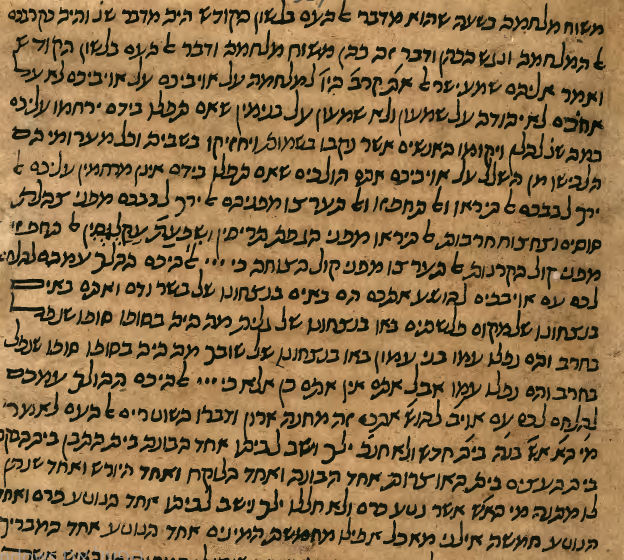 משוח מלחמה בשעה שהוא מדבר אל העם בלשון הקודש היה מדבר שנ׳ והיה כקרבכם
אל המלחמה ונגש הכהן ודבר זה כהן משוח מלחמה ודבר אל העם בלשון הקודש
ואמר אליהם שמע ישר׳ אתם קרבי׳ היו׳ למלחמה על אויביכם על אויביכם לא על
אחיכם לא יהודה על שמעון ולא שמעון על בנימין שאם תפלו בידם ירחמו עליכם
כמה שנ׳ להלן ויקומו האנשים אשר נקבו בשמות ויחזיקו בשביה וכל מערומיהם
הלבישו מן השלל על אויביכם אתם הולכים שאם תפלו בידם אינן מרחמין עליכם אל
ירך לבבכם אל תיראו ואל תחפזו ואל תערצו מפניהם אל ירך לבבכם מפני צהלת
סוסים וצחצוח חרבות אל תיראו מפני הגפת תריסין ושפעת עקלגסין אל תחפזו
מפני קול הקרנות אל תערצו מפני קול הצוחה כי ייי אלהיכם ההולך עמכם להלחם
לכם עם אויביכם להושיע אתכם הם באים בנצחונו של בשר ודם ואתם באים
בנצחונו שלמקום פלשתים באו בנצחונו של גלית מה היה בסופו סופו שנפל
בחרב והם נפלו עמו בני עמון באו בנצחונו של שובך מה היה בסופו סופו שנפל
בחרב והם נפלו עמו אבל אתם אין אתם כן אלא כי ייי אלהיכם ההולך עמכם
להלחם לכם עם אויב׳ להוש׳ אתכ׳ זה מחנה ארון ודברו השוטרים אל העם לאמר
מי הא׳ אש׳ בנה בי׳ חדש ולא חנ׳ ילך וישב לביתו אחד הבונה בית התבן בית הבקר
בית העצים בית האוצרות אחד הבונה ואחד הלוקח ואחד היורש ואחד שניתן
לו מתנה מי האיש אשר נטע כרם ולא חללו ילך וישב לביתו אחד הנוטע כרם ואחד
הנוטע חמשה אילני מאכל אפילו מחמשת המינים אחד הנוטע אחד המבריך